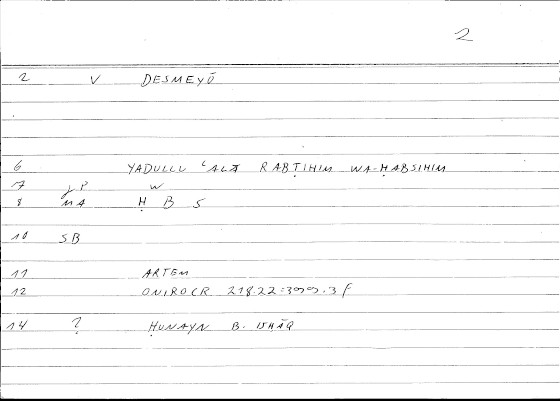 2
2 V DESMEYŪ
6 YADULLU ʿALĀ RABṬIHIM WA-ḤABSIHIM
7 jP W
8 MA Ḥ B S
10 SB
11 ARTEM
12 ONIROCR 218.22:399.3 f
14 ? ḤUNAYN B. ISḤĀQ